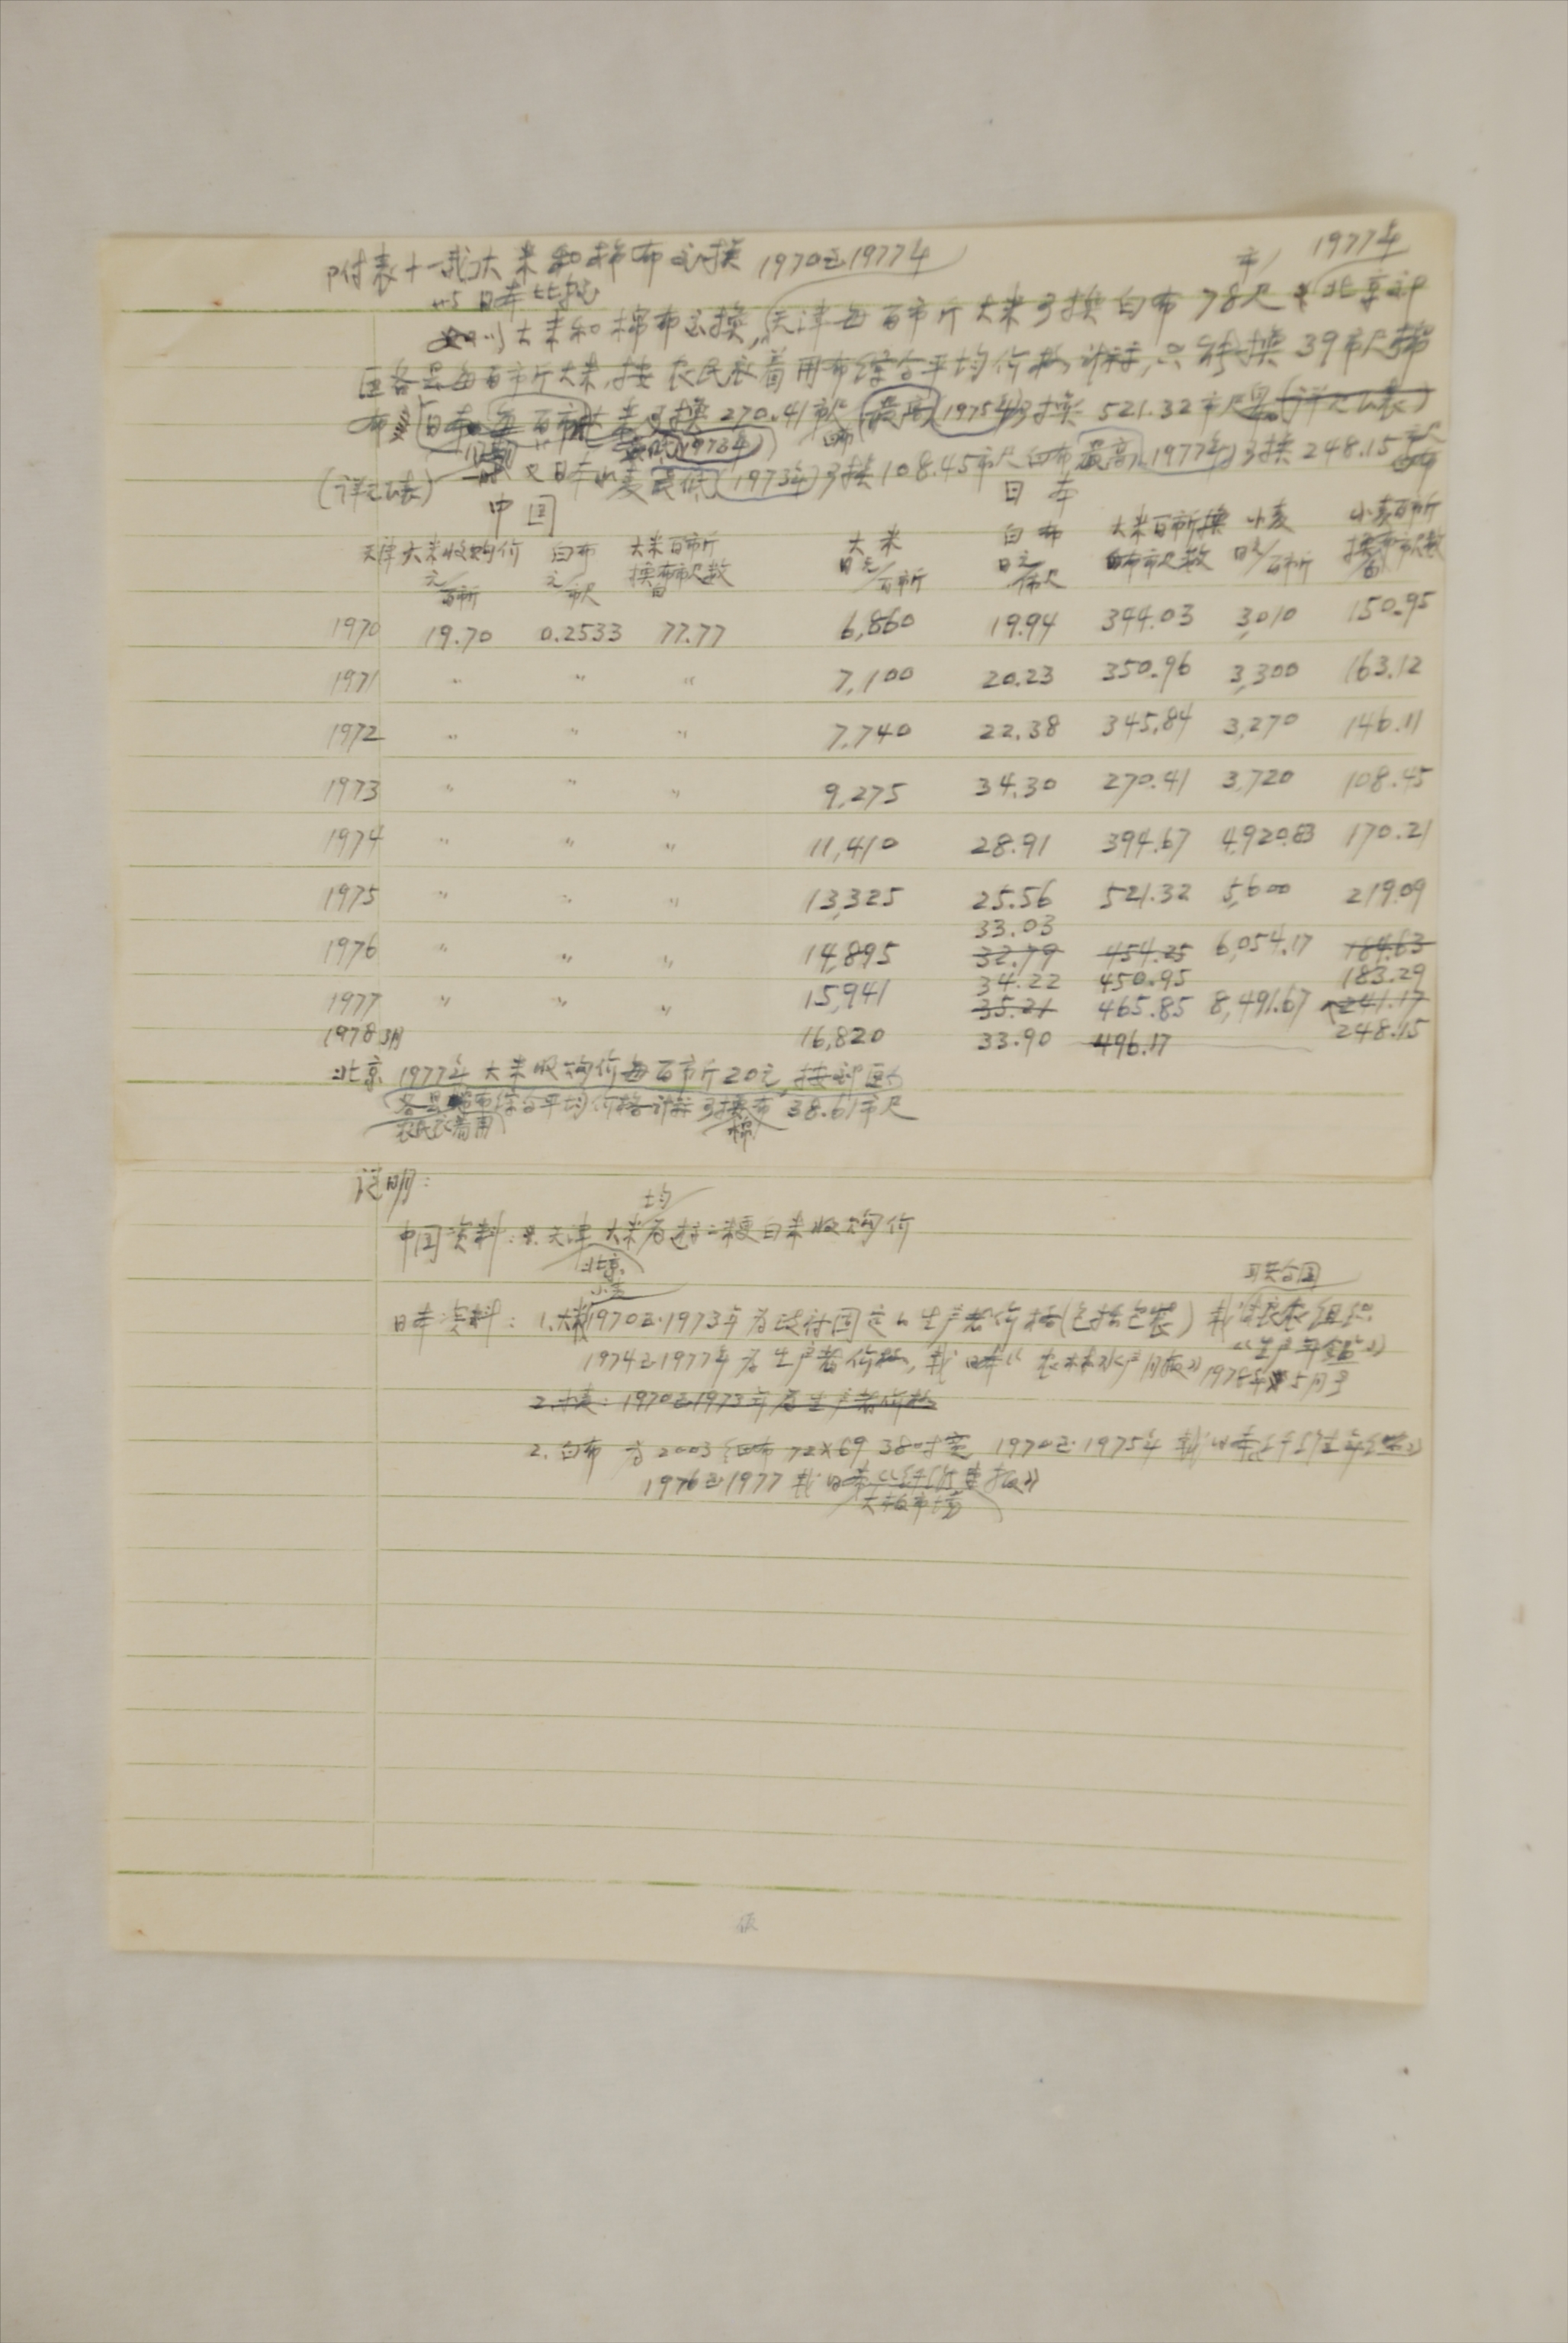 附表十一 我大米和棉布交换 1970至1977年
以与日本比较
如以大米和棉布交换,天津每百市斤大米可换白布78市尺 1977年北京郊
区各县每百市斤大米,按农民衣着用布综合平均价格计算,只能换39市尺棉
布 日本每百市斤大米可换270.41市尺 最高(1975年)可换 521.32市尺 (详见下表)
(1973年)
(详见下表) 又日本小麦最低(1973年)可换108.45市尺白布 最高(1977年)可换248.15市尺
中国 日本
天津大米收购价 元/百市斤 白布 元/市尺 大米百市斤换白布市尺数 大米 日元/百市斤 白布 日元/市尺 大米百市斤换白布市尺数 小麦 日元/百市斤 小麦百市斤换白布市尺数
1970 19.70 0.2533 77.77 6,860 19.94 344.03 3,010 150.95
1971 " " " 7,100 20.23 350.96 3,300 163.12
1972 " " " 7,740 22.38 345.84 3,270 146.11
1973 " " " 9,275 34.30 270.41 3,720 108.45
1974 " " " 11,410 28.91 394.67 4,920.83 170.21
1975 " " " 13,325 25.56 521.32 5,600 219.09
33.03
1976 " " " 14,895 32.79 454.25 6,054.17 184.63
34.22 450.95 183.29
1977 " " " 15,941 35.21 465.85 8,491.67 241.17
1978 3月 16,820 33.90 496.17 248.15
北京 1977年大米收购价每百市斤20元,按郊区
各县农民衣着用棉布综合平均价格计算可换棉布38.61市尺
说明:
中国资料: 天津、北京大米均为标二粳白米收购价
日本资料: 1.大米、小麦1970至1973年为政府固定的生产者价格(包括包装) 载联合国粮农组织
《生产年鉴》
1974至1977年为生产者价格,载日本《农林水产月报》1978年5月号
2.小麦:1970至1973年为生产者价格
2. 白布 为2003细布 72×69 38吋宽 1970至1975年 载《日本纤维年鉴》
1976至1977 载日本《纤维月报》
大阪市场